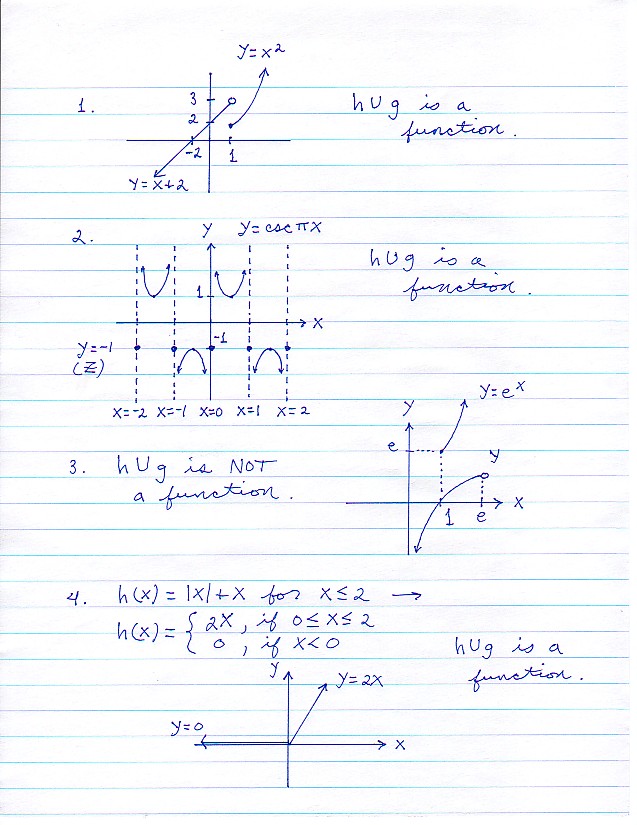 y=x2
1.
3
2
-2
1
y=x+2
h∪g is a
function.
2.
y
y=cscπx
1
x
-1
y=-1
(ℤ)
x=-2 x=-1 x=0 x=1 x=2
h∪g is a
function.
3. h∪g is NOT
a function.
y
y=eˣ
e
y
1
e
x
4. h(x)=|x|+x for x≤2 →
h(x)={ 2x, if 0≤x≤2
0, if x<0
h∪g is a
function.
y
y=2x
y=0
x